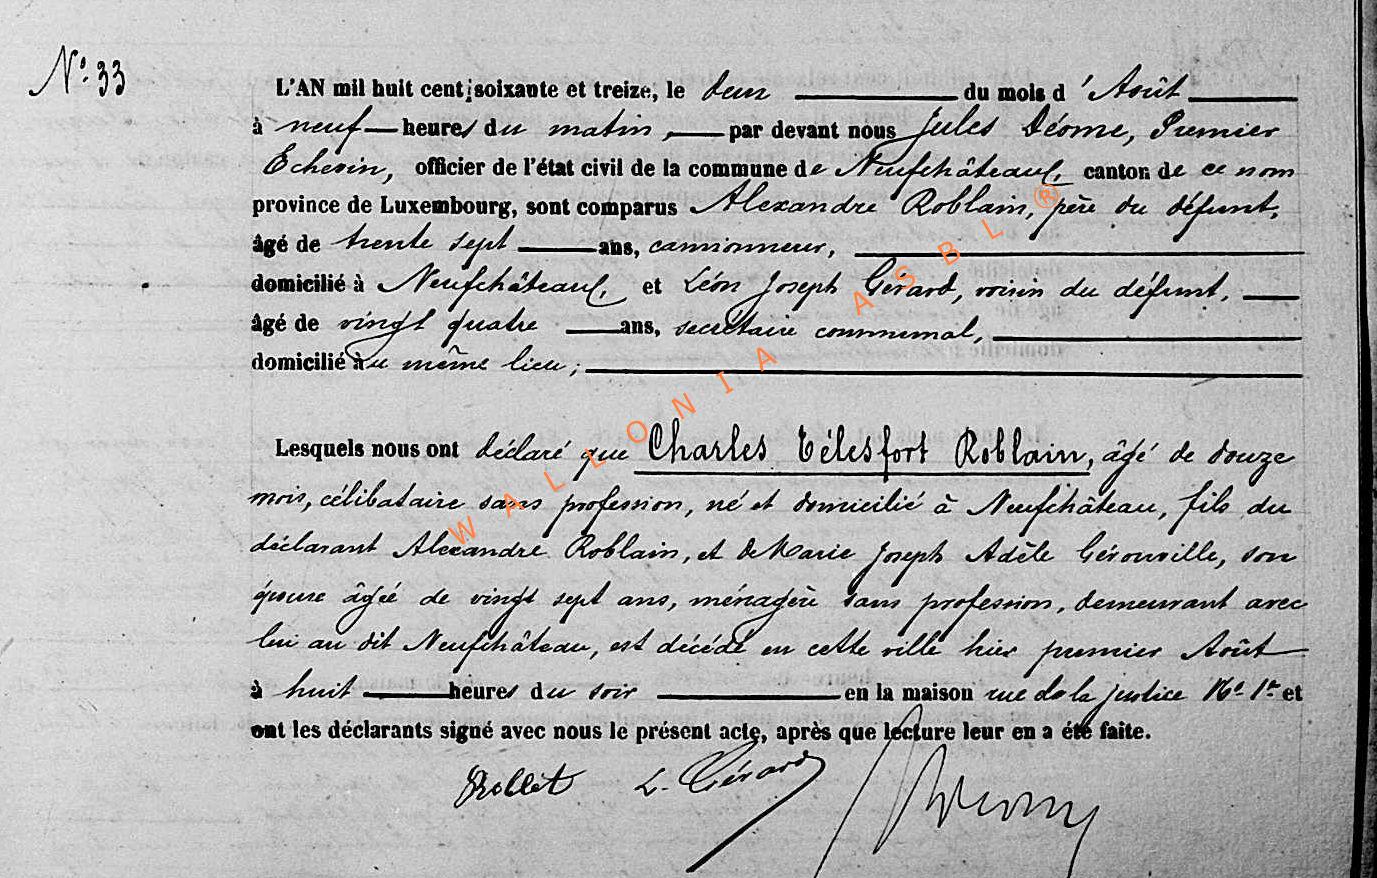 N° 33
L'AN mil huit cent soixante et treize, le deux du mois d'Août
à neuf heures du matin, par devant nous Jules Déome, Premier
Echevin, officier de l'état civil de la commune de Neufchâteau, canton de ce nom
province de Luxembourg, sont comparus Alexandre Roblain, père du défunt,
âgé de trente sept ans, camionneur,
domicilié à Neufchâteau, et Léon Joseph Gérard, voisin du défunt,
âgé de vingt quatre ans, secrétaire communal,
domicilié au même lieu;
Lesquels nous ont déclaré que Charles Télesfort Roblain, âgé de douze
mois, célibataire sans profession, né et domicilié à Neufchâteau, fils du
déclarant Alexandre Roblain, et de Marie Joseph Adèle Gérouville, son
épouse âgée de vingt sept ans, ménagère sans profession, demeurant avec
lui au dit Neufchâteau, est décédé en cette ville hier premier Août
à huit heures du soir en la maison rue de la justice N° 1er et
ont les déclarants signé avec nous le présent acte, après que lecture leur en a été faite.
L. Gérard
WALLONIA ASBL ®